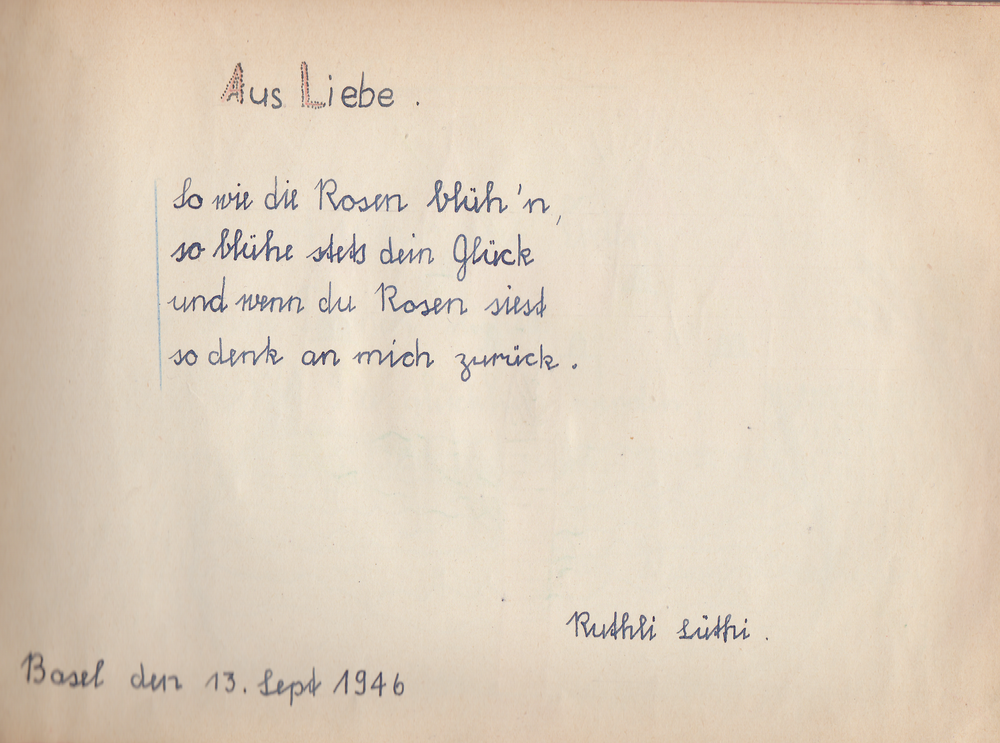 Aus Liebe.
So wie die Rosen blüh'n,
so blühe stets dein Glück
und wenn du Rosen siest
so denk an mich zurück.
Ruthli Lüthi.
Basel den 13. Sept 1946